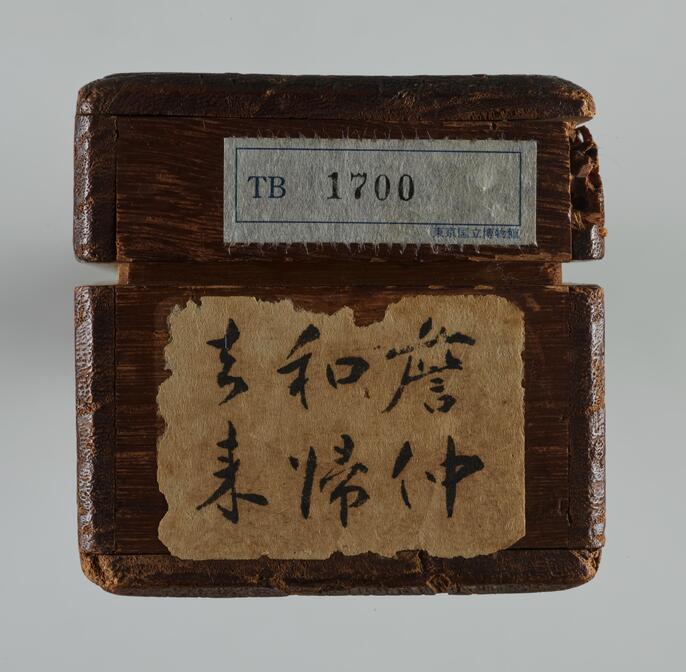 TB 1700
東京国立博物館
詹仲
和帰
去来